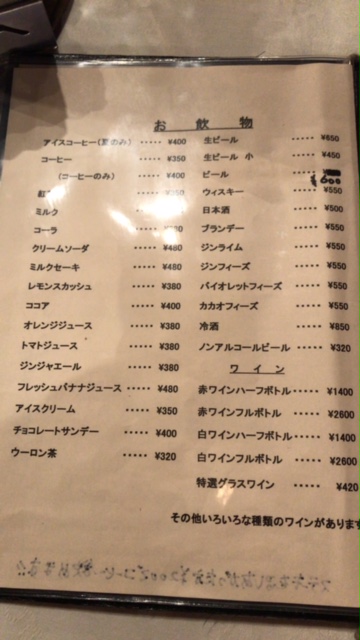 お飲物
アイスコーヒー(夏のみ) ····· ¥400
コーヒー ····· ¥350
(コーヒーのみ) ····· ¥400
ミルク
コーラ
クリームソーダ ····· ¥480
ミルクセーキ ····· ¥480
レモンスカッシュ ····· ¥380
ココア ····· ¥400
オレンジジュース ····· ¥380
トマトジュース ····· ¥380
ジンジャエール ····· ¥380
フレッシュバナナジュース ····· ¥480
アイスクリーム ····· ¥350
チョコレートサンデー ····· ¥400
ウーロン茶 ····· ¥320
生ビール ····· ¥650
生ビール 小 ····· ¥450
ビール ····· ¥600
ウィスキー ····· ¥550
日本酒 ····· ¥500
ブランデー ····· ¥550
ジンライム ····· ¥550
ジンフィーズ ····· ¥550
バイオレットフィーズ ····· ¥550
カカオフィーズ ····· ¥550
冷酒 ····· ¥850
ノンアルコールビール ····· ¥320
ワイン
赤ワインハーフボトル ····· ¥1400
赤ワインフルボトル ····· ¥2600
白ワインハーフボトル ····· ¥1400
白ワインフルボトル ····· ¥2600
特選グラスワイン ····· ¥420
その他いろいろな種類のワインがあります